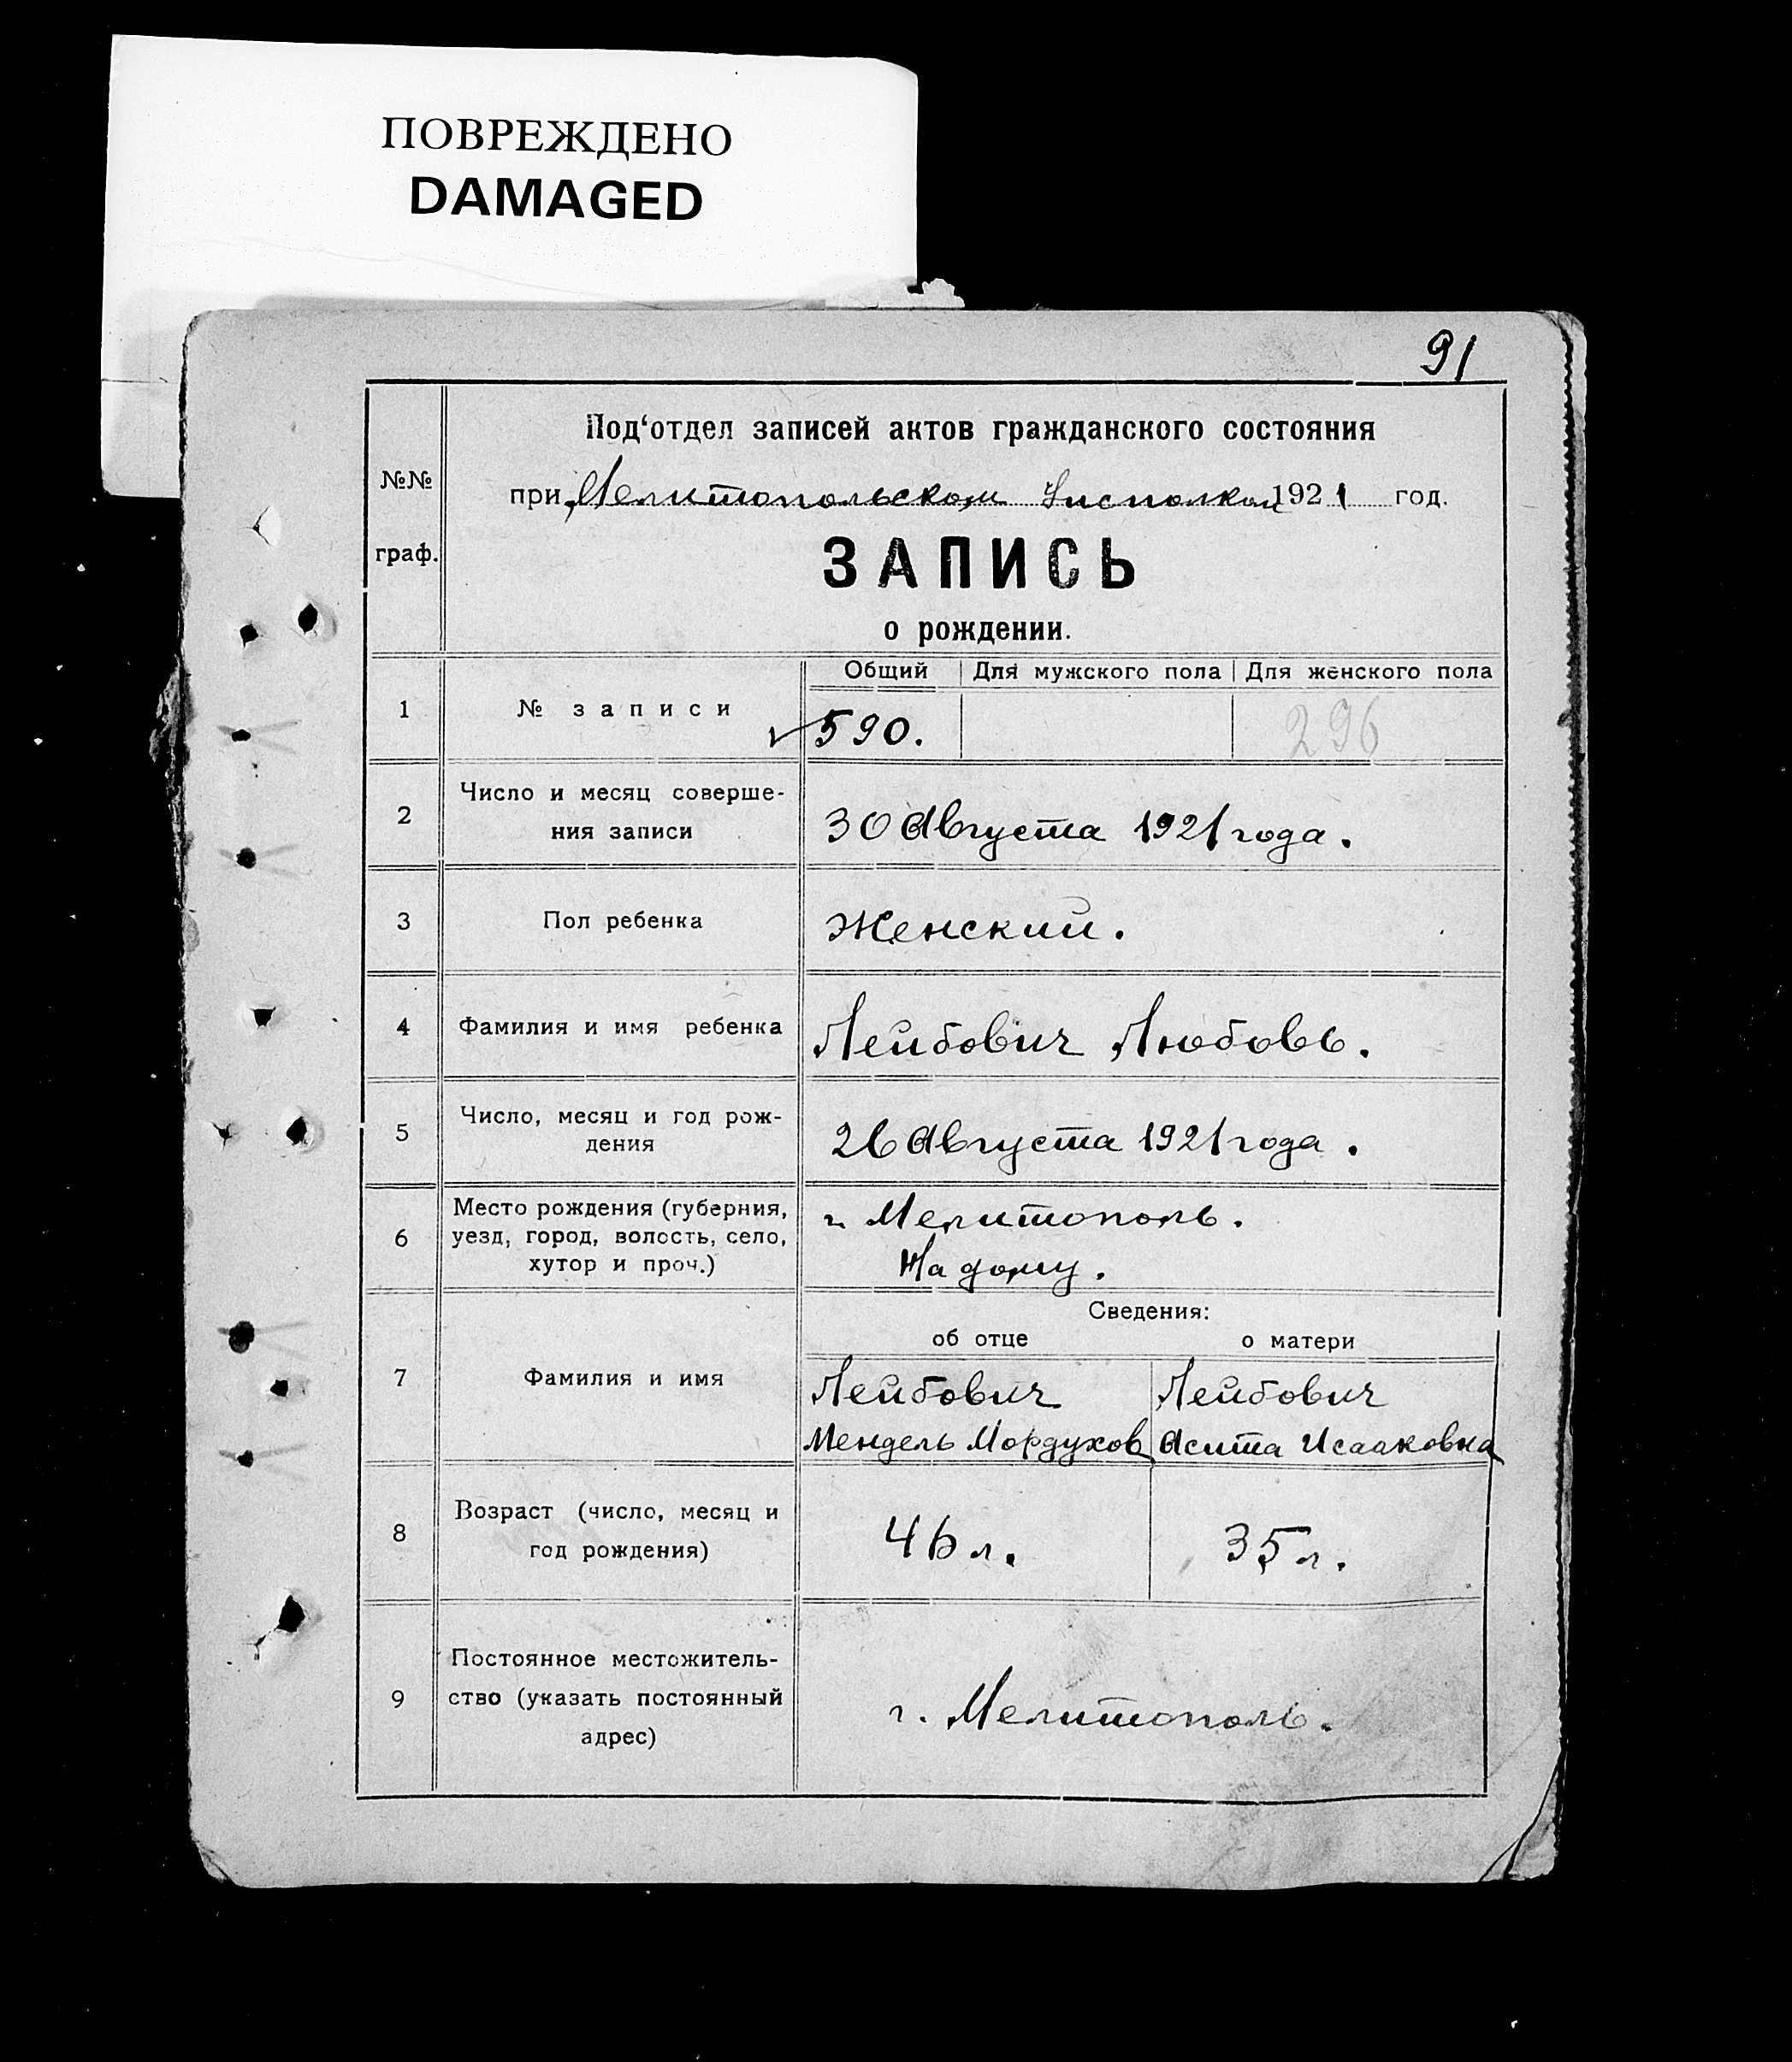 ПОВРЕЖДЕНО
DAMAGED
91
№№
граф.
Под‘отдел записей актов гражданского состояния
при Мелитопольском Исполком 1921 год.
ЗАПИСЬ
о рождении.
Общий Для мужского пола Для женского пола
1 № записи 590. 296
2 Число и месяц соверше-
ния записи
30 Августа 1921 года.
3 Пол ребенка Женский.
4 Фамилия и имя ребенка Лейбович Любовь.
5 Число, месяц и год рож-
дения
26 Августа 1921 года.
6 Место рождения (губерния,
уезд, город, волость, село,
хутор и проч.)
г. Мелитополь.
На дому.
Сведения:
об отце о матери
7 Фамилия и имя
Лейбович Лейбович
Мендель Мордухов Асита Исааковна
8 Возраст (число, месяц и
год рождения)
46 л. 35 л.
9 Постоянное местожитель-
ство (указать постоянный
адрес)
г. Мелитополь.